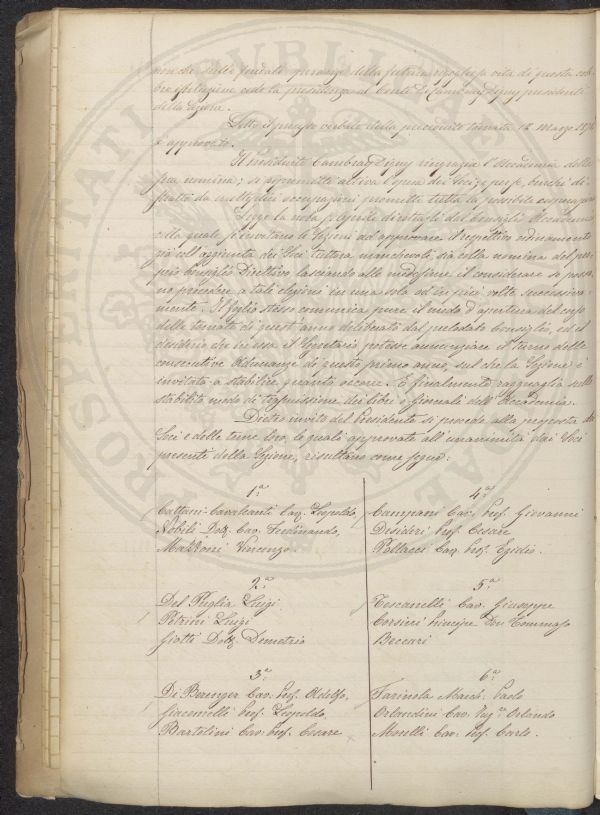 non che sulle fondate speranze della futura rigogliosa vita di questa cele
bre istituzione cede la presidenza al Conte Di Cambray Digny presidente
della Sezione.
Letto il processo verbale della precedente tornata 12 Marzo 1876
è approvato.
Il presidente Cambray Digny ringrazia l'Accademia della
sua nomina; si ripromette attiva l'opra dei Soci, e per se, benchè di-
stratto da molteplici occupazioni promette tutta la possibile
Legge la nota 5 Aprile del Consiglio Accademico
colla quale s'invitano le Sezioni ad approvare il respettivo ordinamento
sia coll'aggiunta dei Soci tuttora manchevoli, sia colla nomina del pro-
prio Consiglio Direttivo lasciando alle medesime il considerare se possa-
no procedere a tali elezioni in una sola od in più volte successiva-
mente. Il foglio stesso comunica pure il modo d'apertura del corso
delle tornate di quest'anno deliberato dal prelodato Consiglio, ed il
desiderio che in essa il Segretario potesse annunziare il turno delle
consecutive Adunanze di questo primo anno, sul che la Sezione è
invitata a stabilire quanto occorre. E finalmente ragguaglia sullo
stabilito modo di trasmissione dei libri e Giornali dell'Accademia.
Dietro invito del Presidente si procede alla proposta dei
Soci e delle terne loro, le quali approvate all'unanimità dai Soci
presenti della Sezione, risultano come segue:
1a
Cattani-Cavalcanti Cav. Leopoldo,
Nobili Dott. Cav. Ferdinando,
Malfoni Vincenzo.
2a
Del Puglia Luigi
Petrini Luigi
Giotti Dott. Demetrio
3a
Di Berenger Cav. Prof. Adolfo,
Giacomelli Prof. Leopoldo,
Bartolini Cav. Prof. Cesare
4a
Campani Cav. Prof. Giovanni
Desideri Prof. Cesare
Pollacci Cav. Prof. Egidio.
5a
Toscanelli Cav. Giuseppe
Corsini Principe Don Tommaso
Beccari
6a
Farinola March. Paolo
Orlandini Cav. Ingre Orlando
Morelli Cav. Prof. Carlo.
PROSPERITATI PUBLICAE